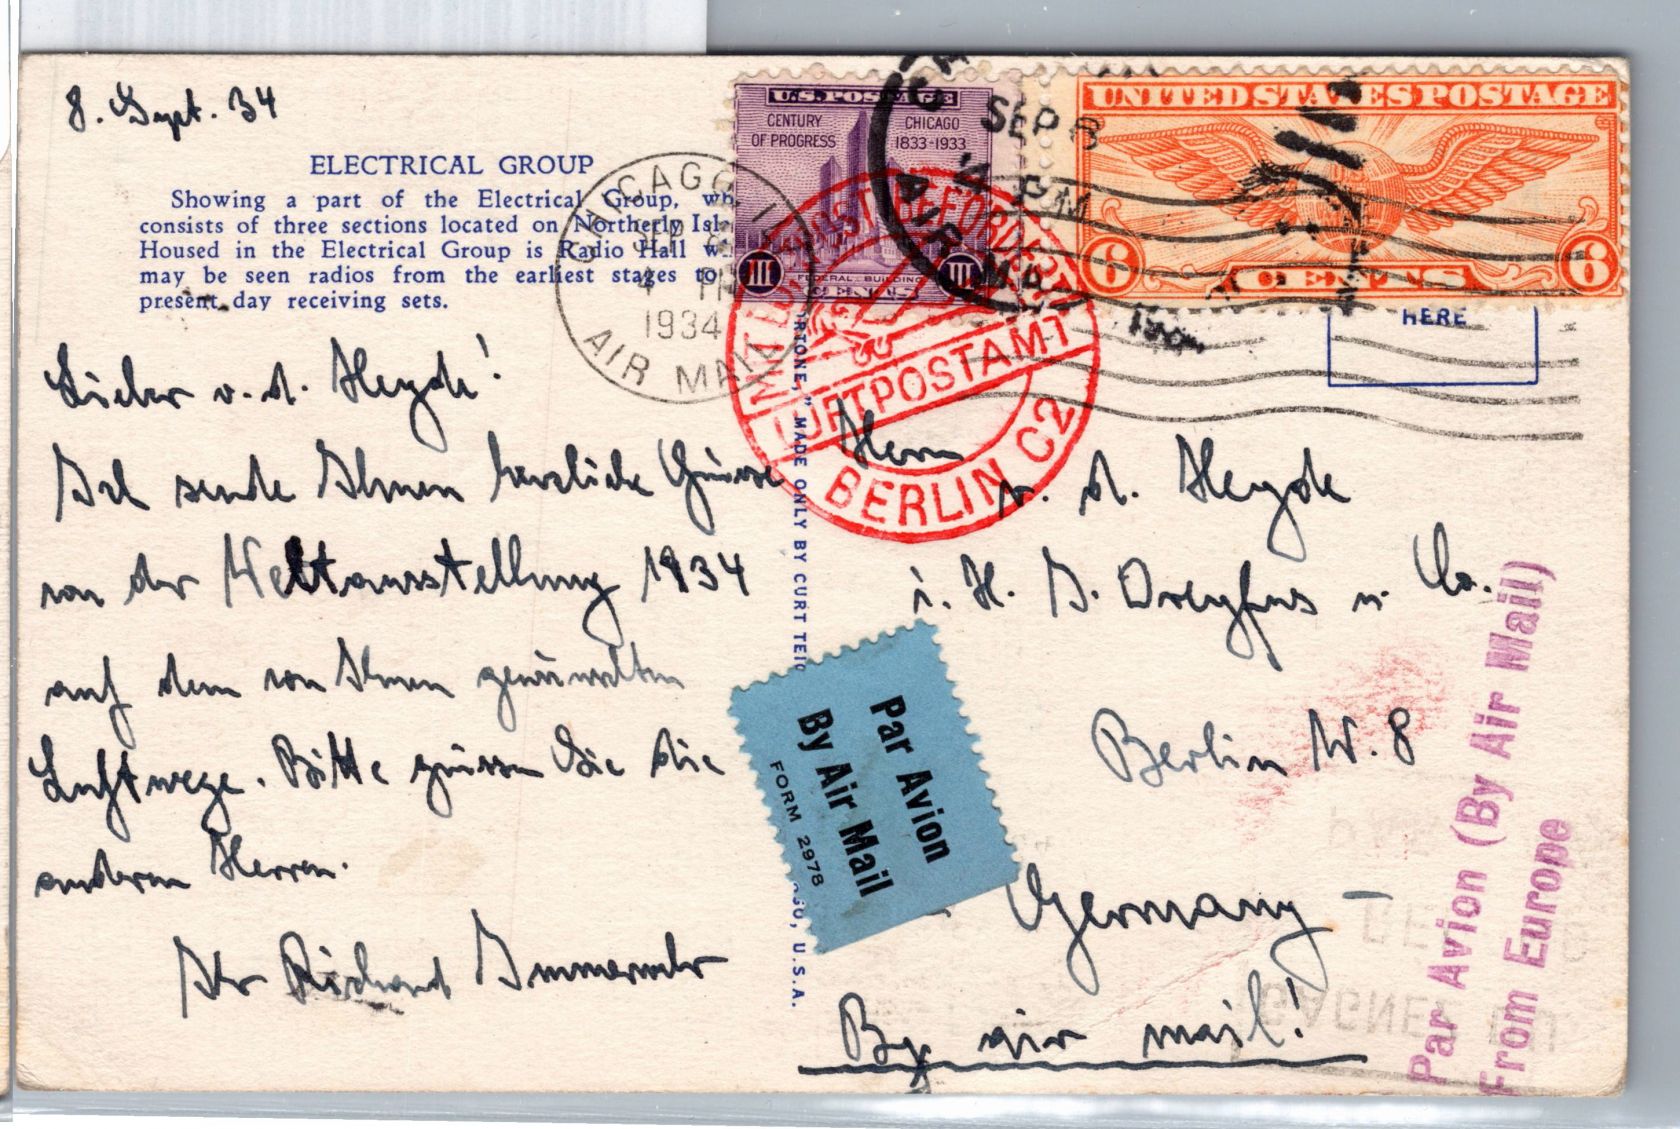 8. Sept. 34
ELECTRICAL GROUP
Showing a part of the Electrical Group, wh
consists of three sections located on Northerly Isla
Housed in the Electrical Group is Radio Hall wh
may be seen radios from the earliest stages to
present day receiving sets.
Lieber v. d. Heyde!
Ich sende Ihnen herzliche Grüsse
von der Weltausstellung 1934
auf dem von Ihnen gewünschten
Luftwege. Bitte grüssen Sie die
anderen Herren.
Ihr Richard
U.S. POSTAGE
CENTURY OF PROGRESS
CHICAGO 1833-1933
FEDERAL BUILDING
III CENTS III
UNITED STATES POSTAGE
6 CENTS 6
CHICAGO ILL
SEP 8
4 PM
1934
AIR MAIL
SEP 8
PM
AIR MA
MIT LUFTPOST BEFÖRDERT
LUFTPOSTAMT
BERLIN C2
HERE
ORTONE," MADE ONLY BY CURT TEIC
GO, U.S.A.
Herrn
v. d. Heyde
i. H. J. Dreyfus u. Co.
Berlin W. 8
Germany
By air mail!
Par Avion
By Air Mail
FORM 2978
Par Avion (By Air Mail)
From Europe